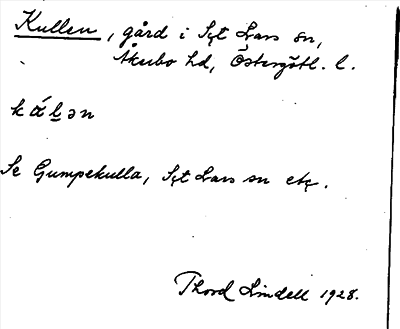 Kullen, gård i Sgt Lars sn,
Åkerbo hd, Östergötl. l.
Se Gumpekulla, Sgt Lars sn etc.
Thord Lindell 1928.